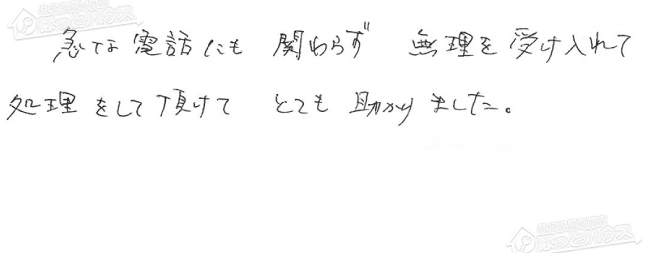 急な電話にも 関わらず 無理を受け入れて
処理をして頂けて とても助かりました。